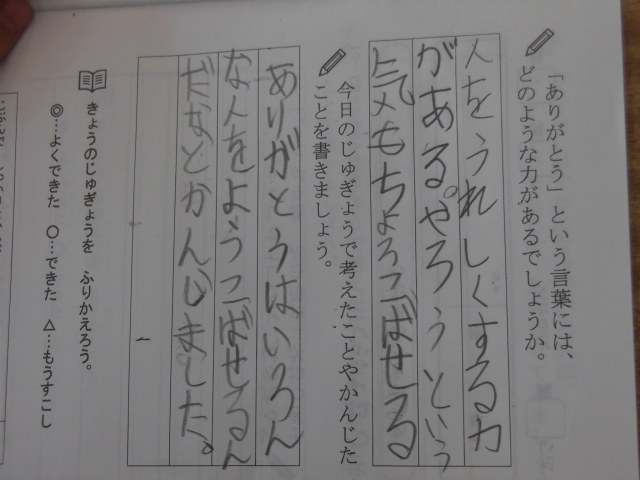 「ありがとう」という言葉には、
どのような力があるでしょうか。
人をうれしくする力
がある。やろうという
気もちょろこばせる
今日のじゅぎょうで考えたことやかんじた
ことを書きましょう。
ありがとうはいろん
な人をようこばせるん
だなとかんじました。
きょうのじゅぎょうを ふりかえろう。
◎…よくできた ○…できた △…もうすこし